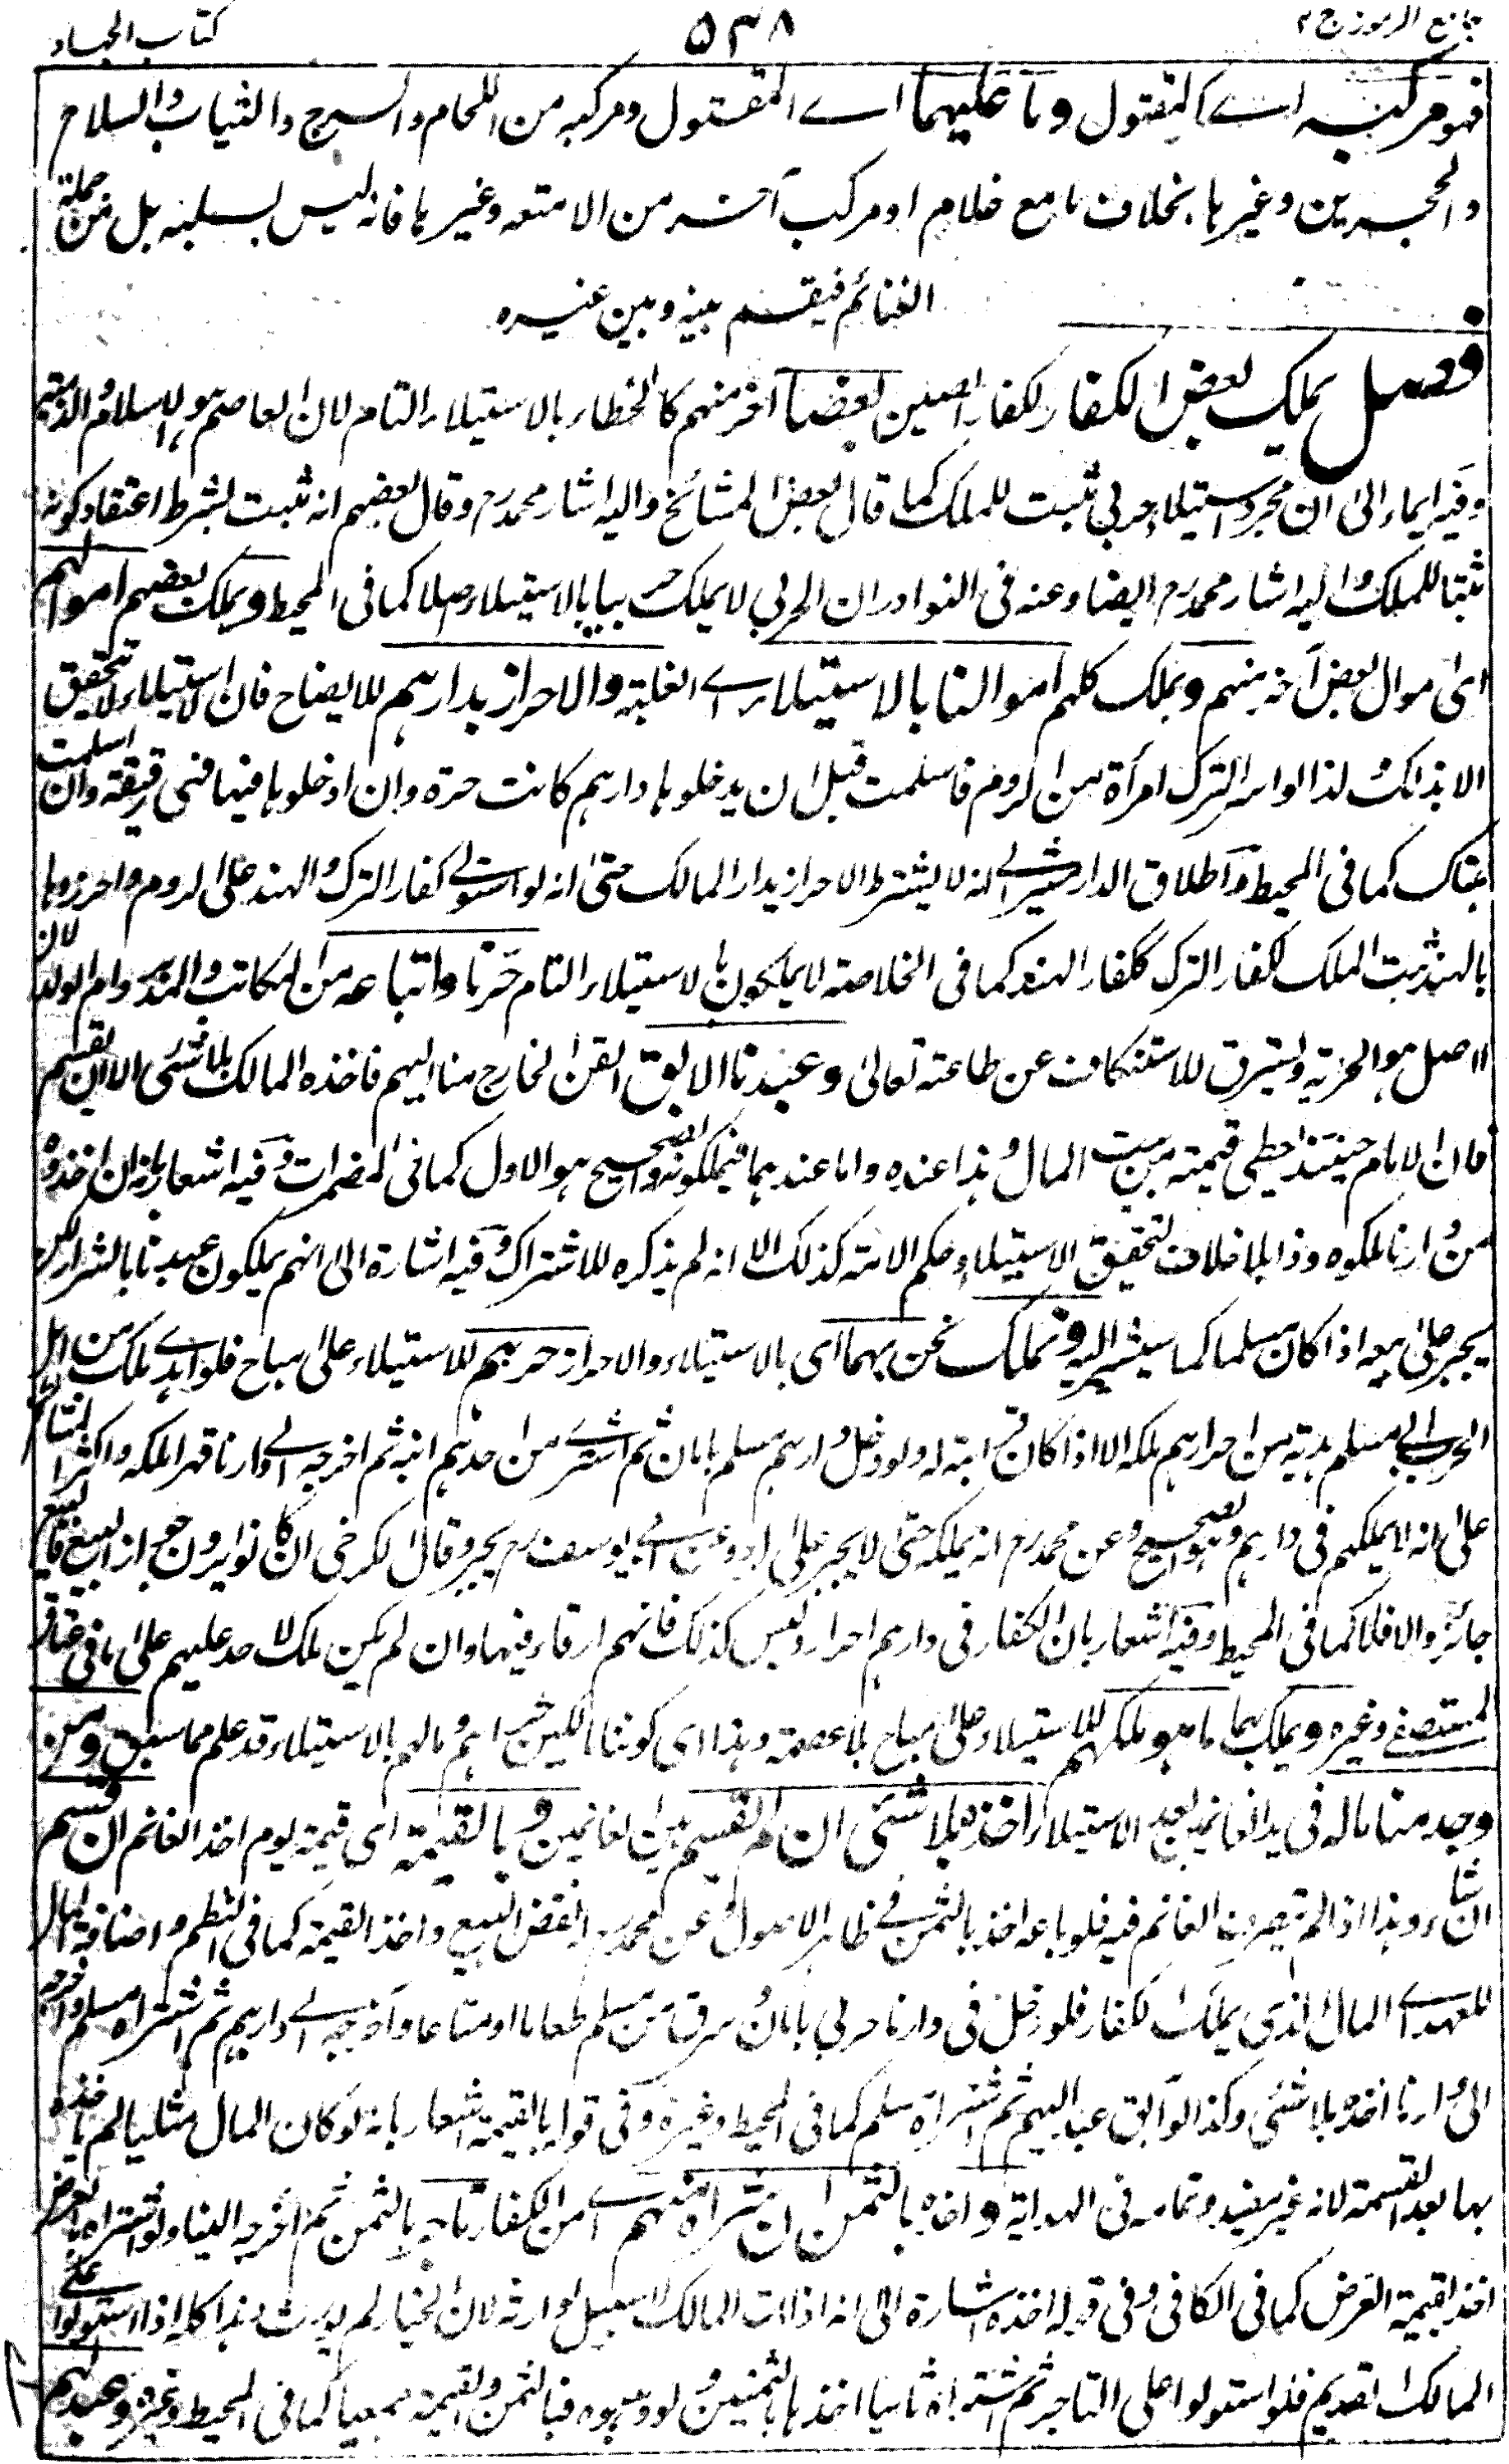 جامع الرموز ج ۲
۵۳۸
كتاب الجهاد
فهو مركبه اے المقتول وما عليهما اے المقتول ومركبه من اللجام والسرج والثياب والسلاح
والحجرين وغيرها بخلاف ما مع غلام او مركب آخر من الامتعه وغيرها فانه ليس بسلبه بل من جملة
الغنائم فيقسم بينه وبين غيره
فصل يملك بعض الكفار لكفار اصلين بعضا آخر منهم كالخطار بالاستيلاء التام لان العاصم هو الاسلام والذمة
وفيه ايماء الى ان مجرد استيلاء حربي مثبت للملك كما قال بعض المشائخ واليه اشار محمد رح وقال بعضهم انه مثبت بشرط اعتقاد كونه
مثبتا للملك واليه اشار محمد رح ايضا وعنه فى النوادر ان الحربي لا يملك حربيا بالاستيلاء اصلا كما فى المحيط ويملك بعضهم اموالهم
اى اموال بعض آخر منهم ويملك كلهم اموالنا بالاستيلاء اے الغلبة والاحراز بدارهم للايضاح فان الاستيلاء لا يتحقق
الا بذلك ولذا لو اسر الترك امرأة من الروم فاسلمت قبل ان يدخلوها دارهم كانت حرة وان ادخلوها فيها فهى رقيقة وان اسلمت
هناك كما فى المحيط واطلاق الدار مشير الى انه لا يشترط الاحراز بدار المالك حتى انه لو استولى كفار الترك والهند على الروم واحرزوها
بالهند ثبت الملك لكفار الترك ككفار الهند كما فى الخلاصة لا يملكون بالاستيلاء التام حرنا واتباعه من المكاتب والمدبر وام الولد لان
الاصل هو الحرية ويسترق للاستنكاف عن طاعته تعالى وعبدنا الآبق القن الخارج منا اليهم فاخذه المالك بلا شئ الا ان يقسم
فان الامام حينئذ يعطى قيمته من بيت المال وهذا عنده واما عندهما فيملكونه والصحيح هو الاول كما فى المضمرات وفيه اشعار بانه ان اخذوه
من دارنا ملكوه وذا بلا خلاف لتحقق الاستيلاء وحكم الامة كذلك الا انه لم يذكره للاشتراك وفيه اشارة الى انهم يملكون عبدنا بالشراء لكن
يجبر على بيعه اذا كان مسلما كما سيشير اليه ونملك نحن بهما اى بالاستيلاء والاحراز حرهم للاستيلاء على مباح فلو اهدے ملك من اهل
الحرب الى مسلم هدية من احرارهم ملكه الا اذا كان قرابته له ولو دخل دارهم مسلم بامان ثم اشترى من احدهم ابنه ثم اخرجه الى دارنا قهرا ملكه واكثر المشائخ
على انه لا يملكهم فى دارهم وهو الصحيح وعن محمد رح انه يملكه حتى لا يجبر على رده وعن ابى يوسف رح يجبر وقال الكرخى ان كانوا يرون جواز البيع فالبيع
جائز والا فلا كما فى المحيط وفيه اشعار بان الكفار فى دارهم احرار وليس كذلك فانهم ارقاء فيها وان لم يكن ملك لاحد عليهم على ما فى عتاق
المستصفے وغيره ويملك بهما ما هو ملكهم للاستيلاء على مباح بلا عصمة وهذا اى كوننا مالكين حرهم ومالهم بالاستيلاء قد علم مما سبق ومن
وجد منا ماله فى يد الغانمين بعد الاستيلاء اخذه بلا شئ ان لم يقسم بين الغانمين وبالقيمة اى قيمة يوم اخذ الغانم ان قسم
ان شاء وهذا اذا لم يتصرف الغانم فيه فلو باعه اخذ بالثمن فى ظاهر الاصول وعن محمد رح ينقض البيع واخذ القيمة كما فى النظم واضافة المال
للعهد اے المال الذى يملك الكفار فلو دخل فى دارنا حربي بامان وسرق من مسلم طعاما او متاعا واخرجه الى دارهم ثم اشتراه مسلم واخرجه
الى دارنا اخذه بلا شئ وكذا لو ابق عبد اليهم ثم اشتراه مسلم كما فى المحيط وغيره وفى قوله بالقيمة اشعار بانه لو كان المال مثليا لم ياخذه
بها بعد القسمة لانه غير مفيد وتمامه فى الهداية واخذه بالثمن ان اشتراه منهم اے من الكفار تاجر بالثمن ثم اخرجه الينا ولو اشتراه بالعرض
اخذ بقيمة العرض كما فى الكافى وفى قوله اخذه اشارة الى انه اذا مات المالك لا سبيل لوارثه لان الخيار لم يورث وهذا كله اذا استولوا على
المالك القديم فلو استولوا على التاجر ثم اشتراه ثانيا اخذها بالثمنين ولو وهبوه فبالثمن والقيمة جميعا كما فى المحيط وغيره وعبدهم